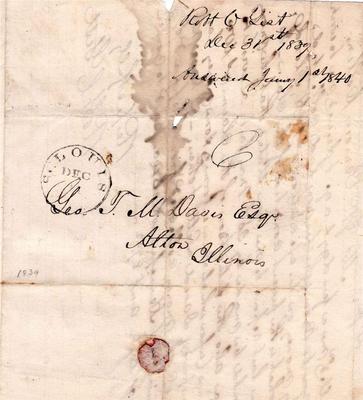 Dec 31st 1839
Answered Jany 1st 1840
ST. LOUIS
DEC
6
Geo. T. M. Davis Esqr.
Alton
Illinois
1839